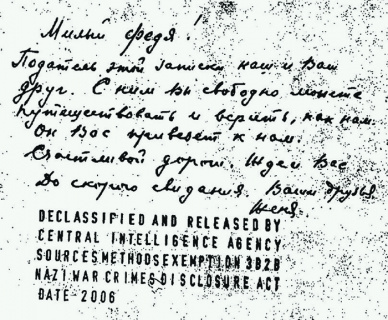 Милый Федя!
Податель этой записки наш и Ваш
друг. С ним Вы свободно можете
путешествовать и верить, как нам.
Он Вас привезет к нам.
Счастливой дороги. Ждем Вас
До скорого свидания. Ваши друзья
Женя.
DECLASSIFIED AND RELEASED BY
CENTRAL INTELLIGENCE AGENCY
SOURCESMETHODSEXEMPTION 3B2B
NAZI WAR CRIMES DISCLOSURE ACT
DATE 2006